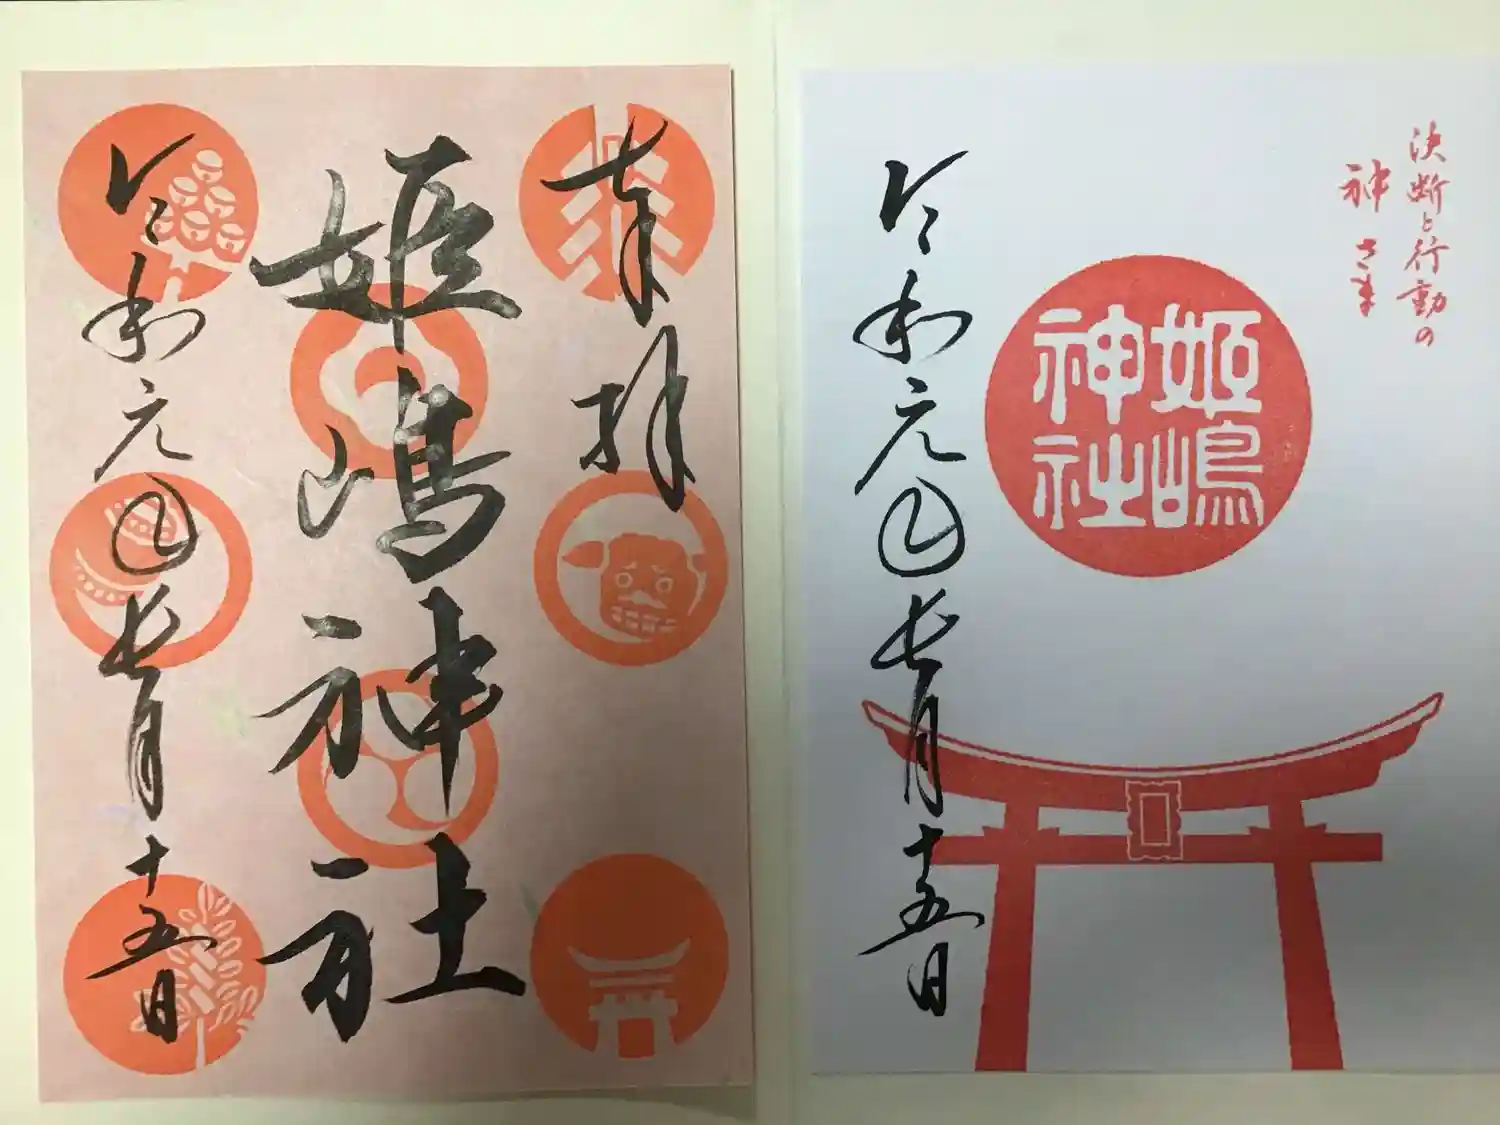 奉拝
姫嶋神社
令和元年長月十五日
決断と行動の
神さま
姫嶋
神社
令和元年長月十五日